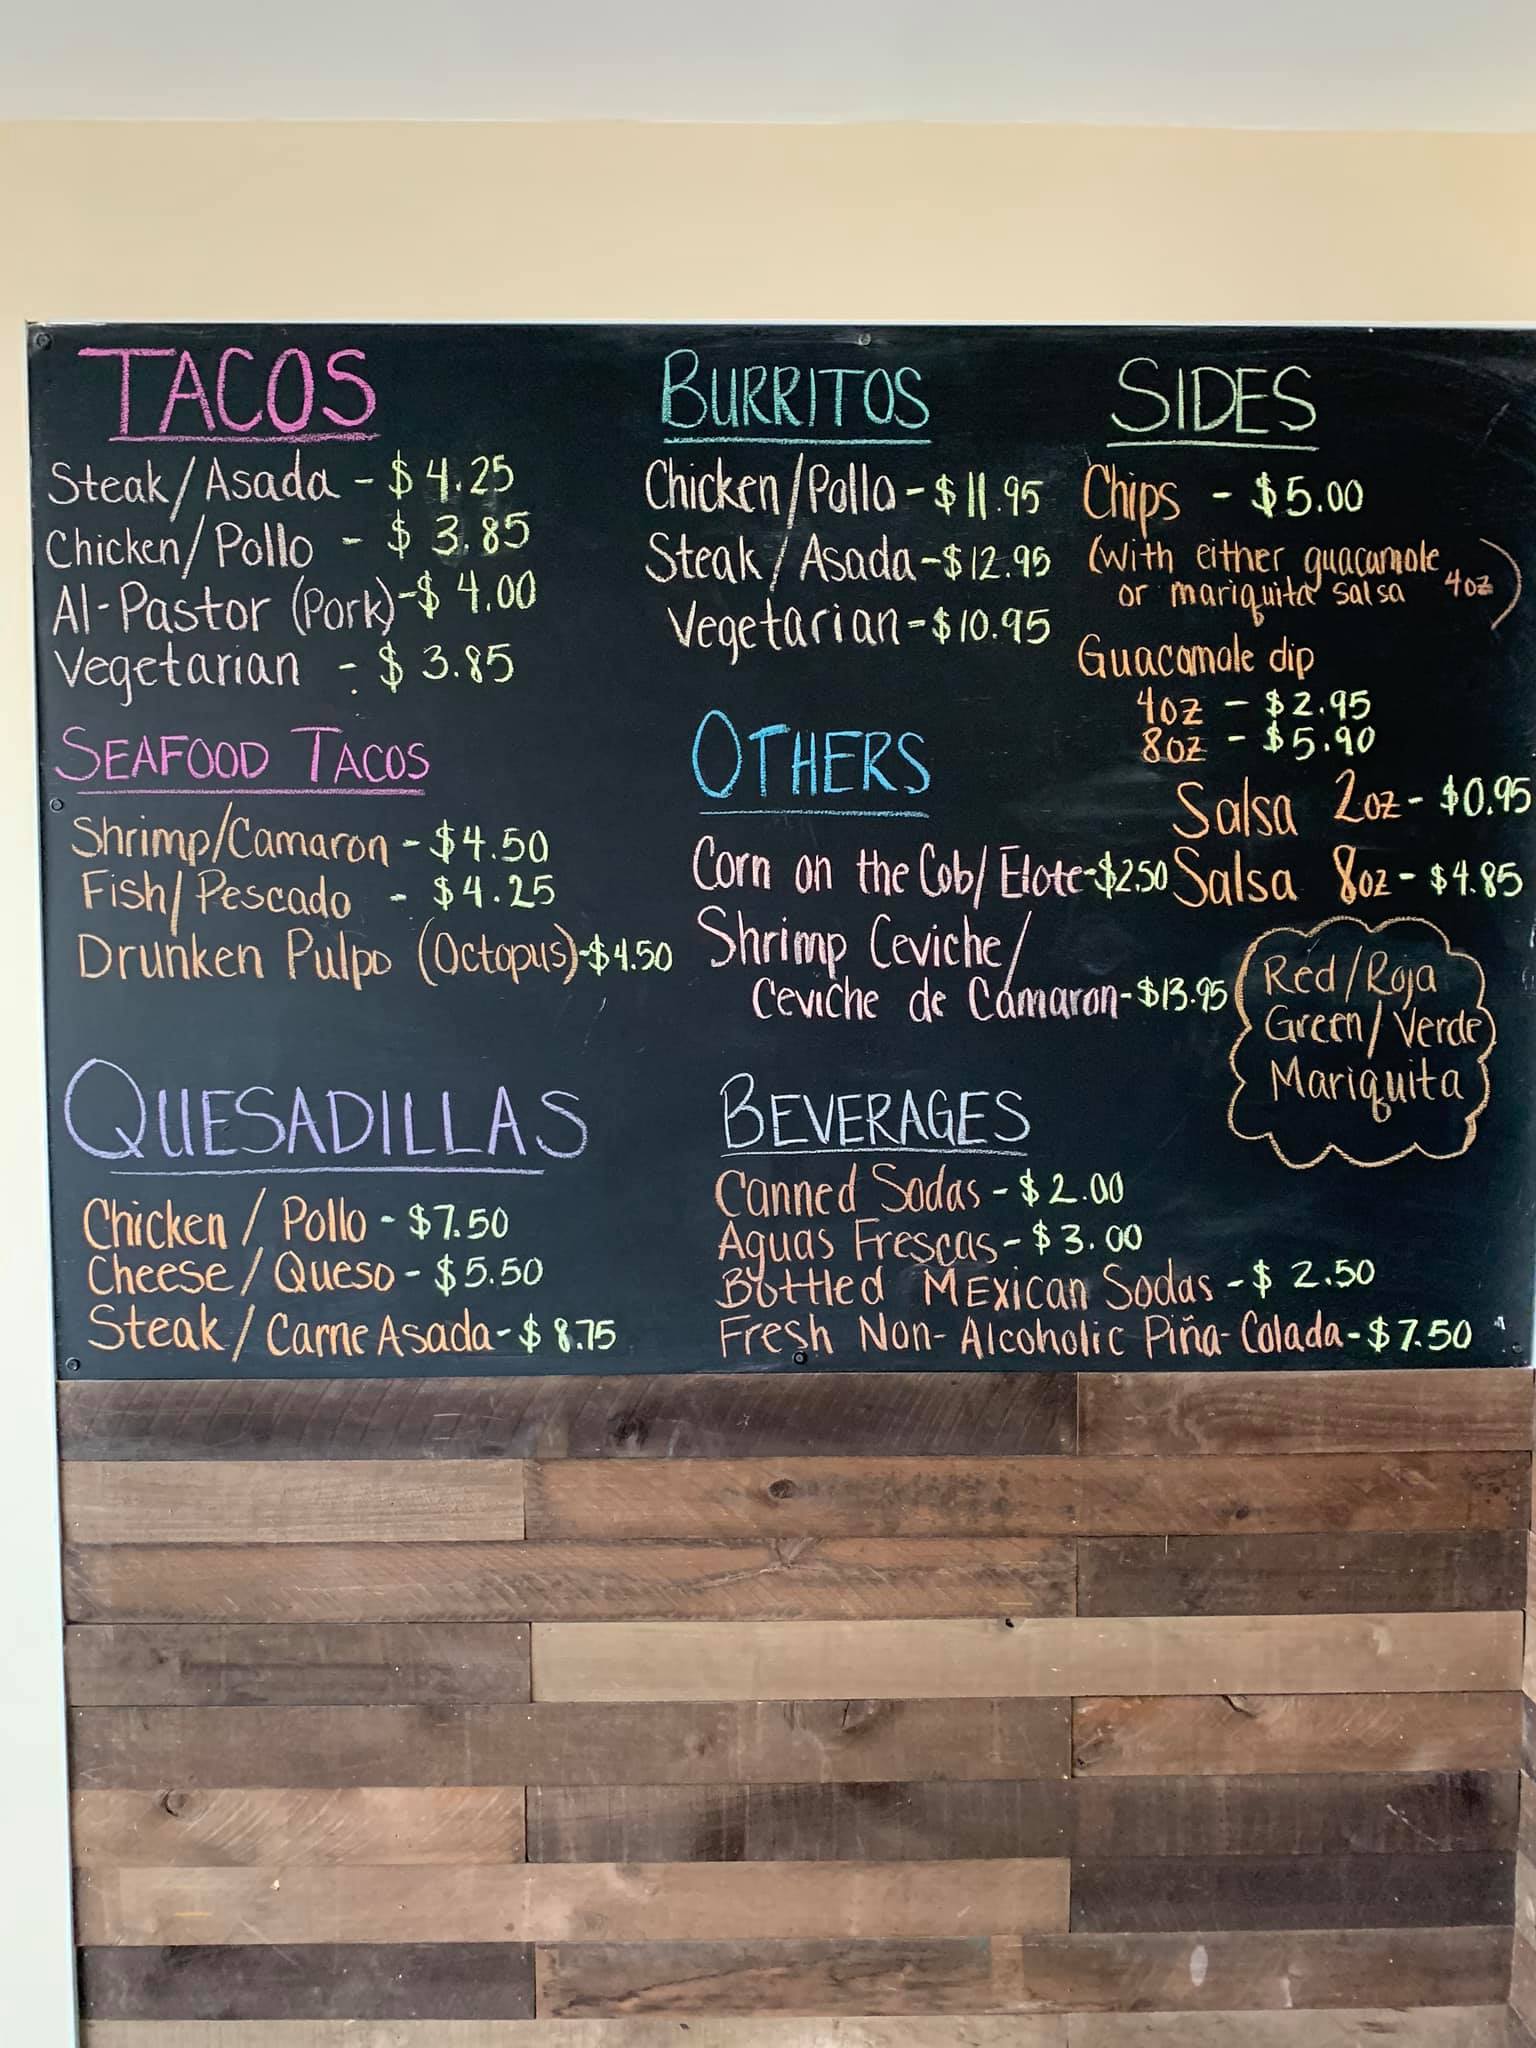 TACOS
Steak/Asada - $4.25
Chicken/Pollo - $3.85
Al-Pastor (Pork) - $4.00
Vegetarian - $3.85
SEAFOOD TACOS
Shrimp/Camaron - $4.50
Fish/Pescado - $4.25
Drunken Pulpo (Octopus) - $4.50
QUESADILLAS
Chicken / Pollo - $7.50
Cheese / Queso - $5.50
Steak / Carne Asada - $8.75
BURRITOS
Chicken/Pollo - $11.95
Steak/Asada - $12.95
Vegetarian - $10.95
OTHERS
Corn on the Cob/Elote - $2.50
Shrimp Ceviche/
Ceviche de Camaron - $13.95
BEVERAGES
Canned Sodas - $2.00
Aguas Frescas - $3.00
Bottled Mexican Sodas - $2.50
Fresh Non-Alcoholic Piña-Colada - $7.50
SIDES
Chips - $5.00
(with either guacamole
or mariquita salsa 4oz)
Guacamole dip
4oz - $2.95
8oz - $5.90
Salsa 2oz - $0.95
Salsa 8oz - $4.85
Red/Roja
Green/Verde
Mariquita